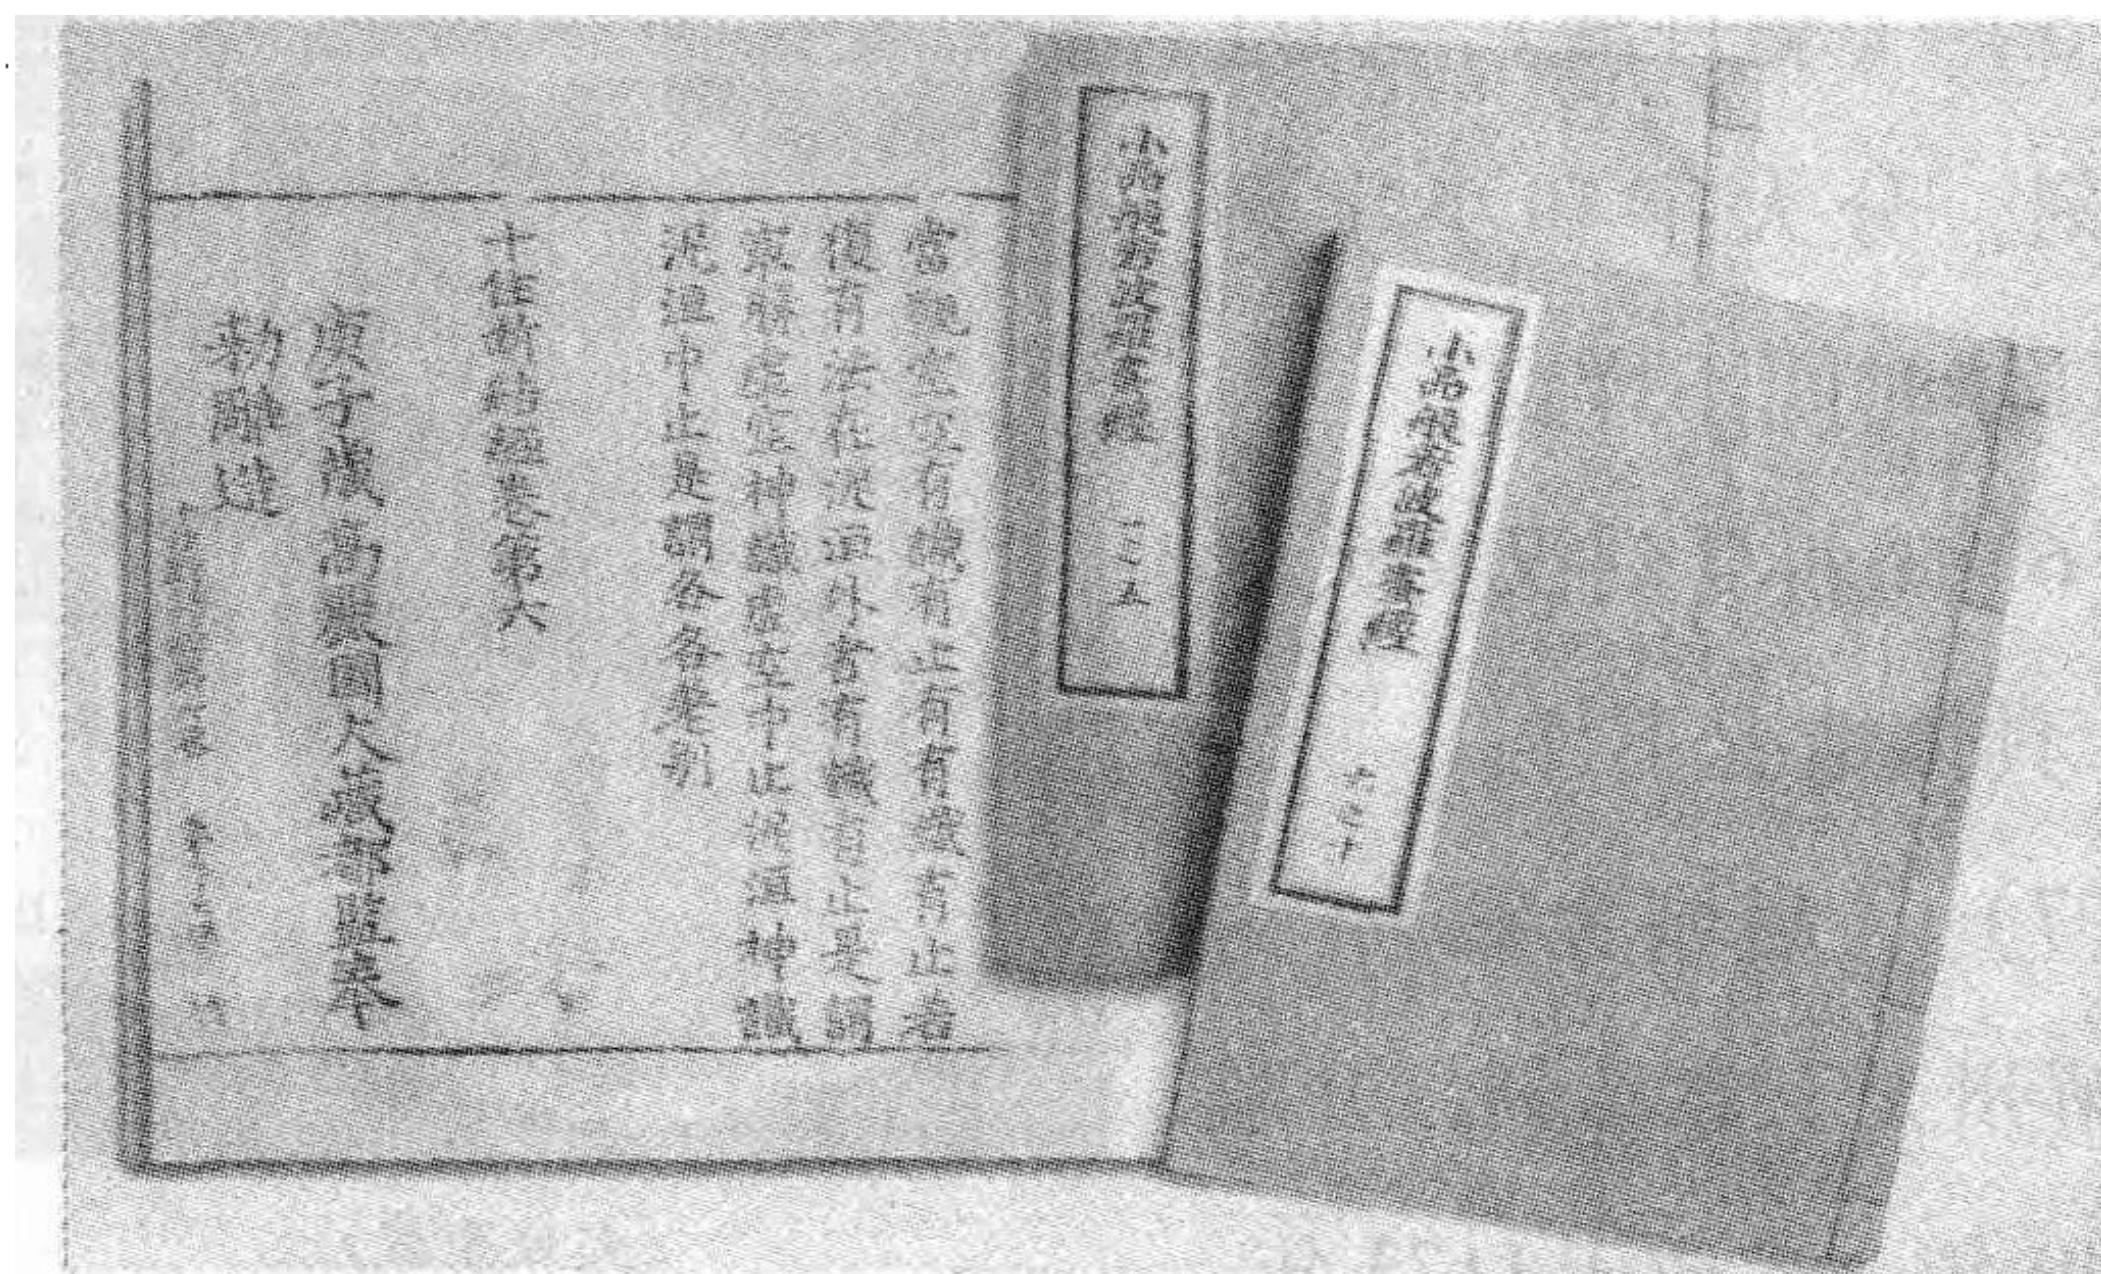 小品般若波羅蜜經 六之十
小品般若波羅蜜經 一之五
當觀空空有識有止有有識有止者
復有法在泥洹外者有識有止是謂
最勝虛空神識虛空中止泥洹神識
泥洹中止是謂各各差別
十住斷結經卷第六
庚子歲高麗國大藏都監奉
勅雕造